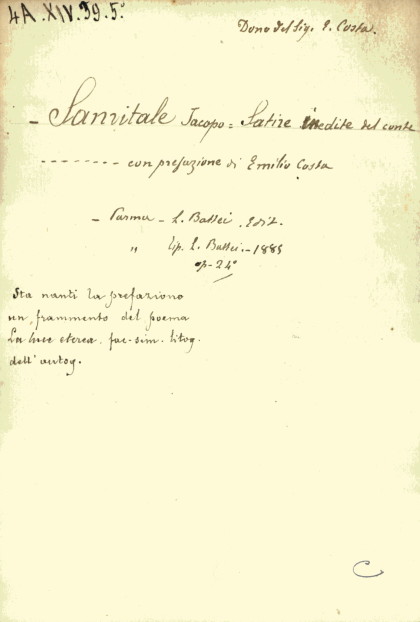 4A.XIV.39.5.
Dono del Sig. E. Costa.
- Sanvitale Jacopo = Satire inedite del conte
-------- con prefazione di Emilio Costa
- Parma - L. Battei. Edit.
" Tip. L. Battei. - 1885
op-24°
Sta nanti la prefazione
un frammento del poema
La luce eterea. fac-sim. litog.
dell' autog.
C